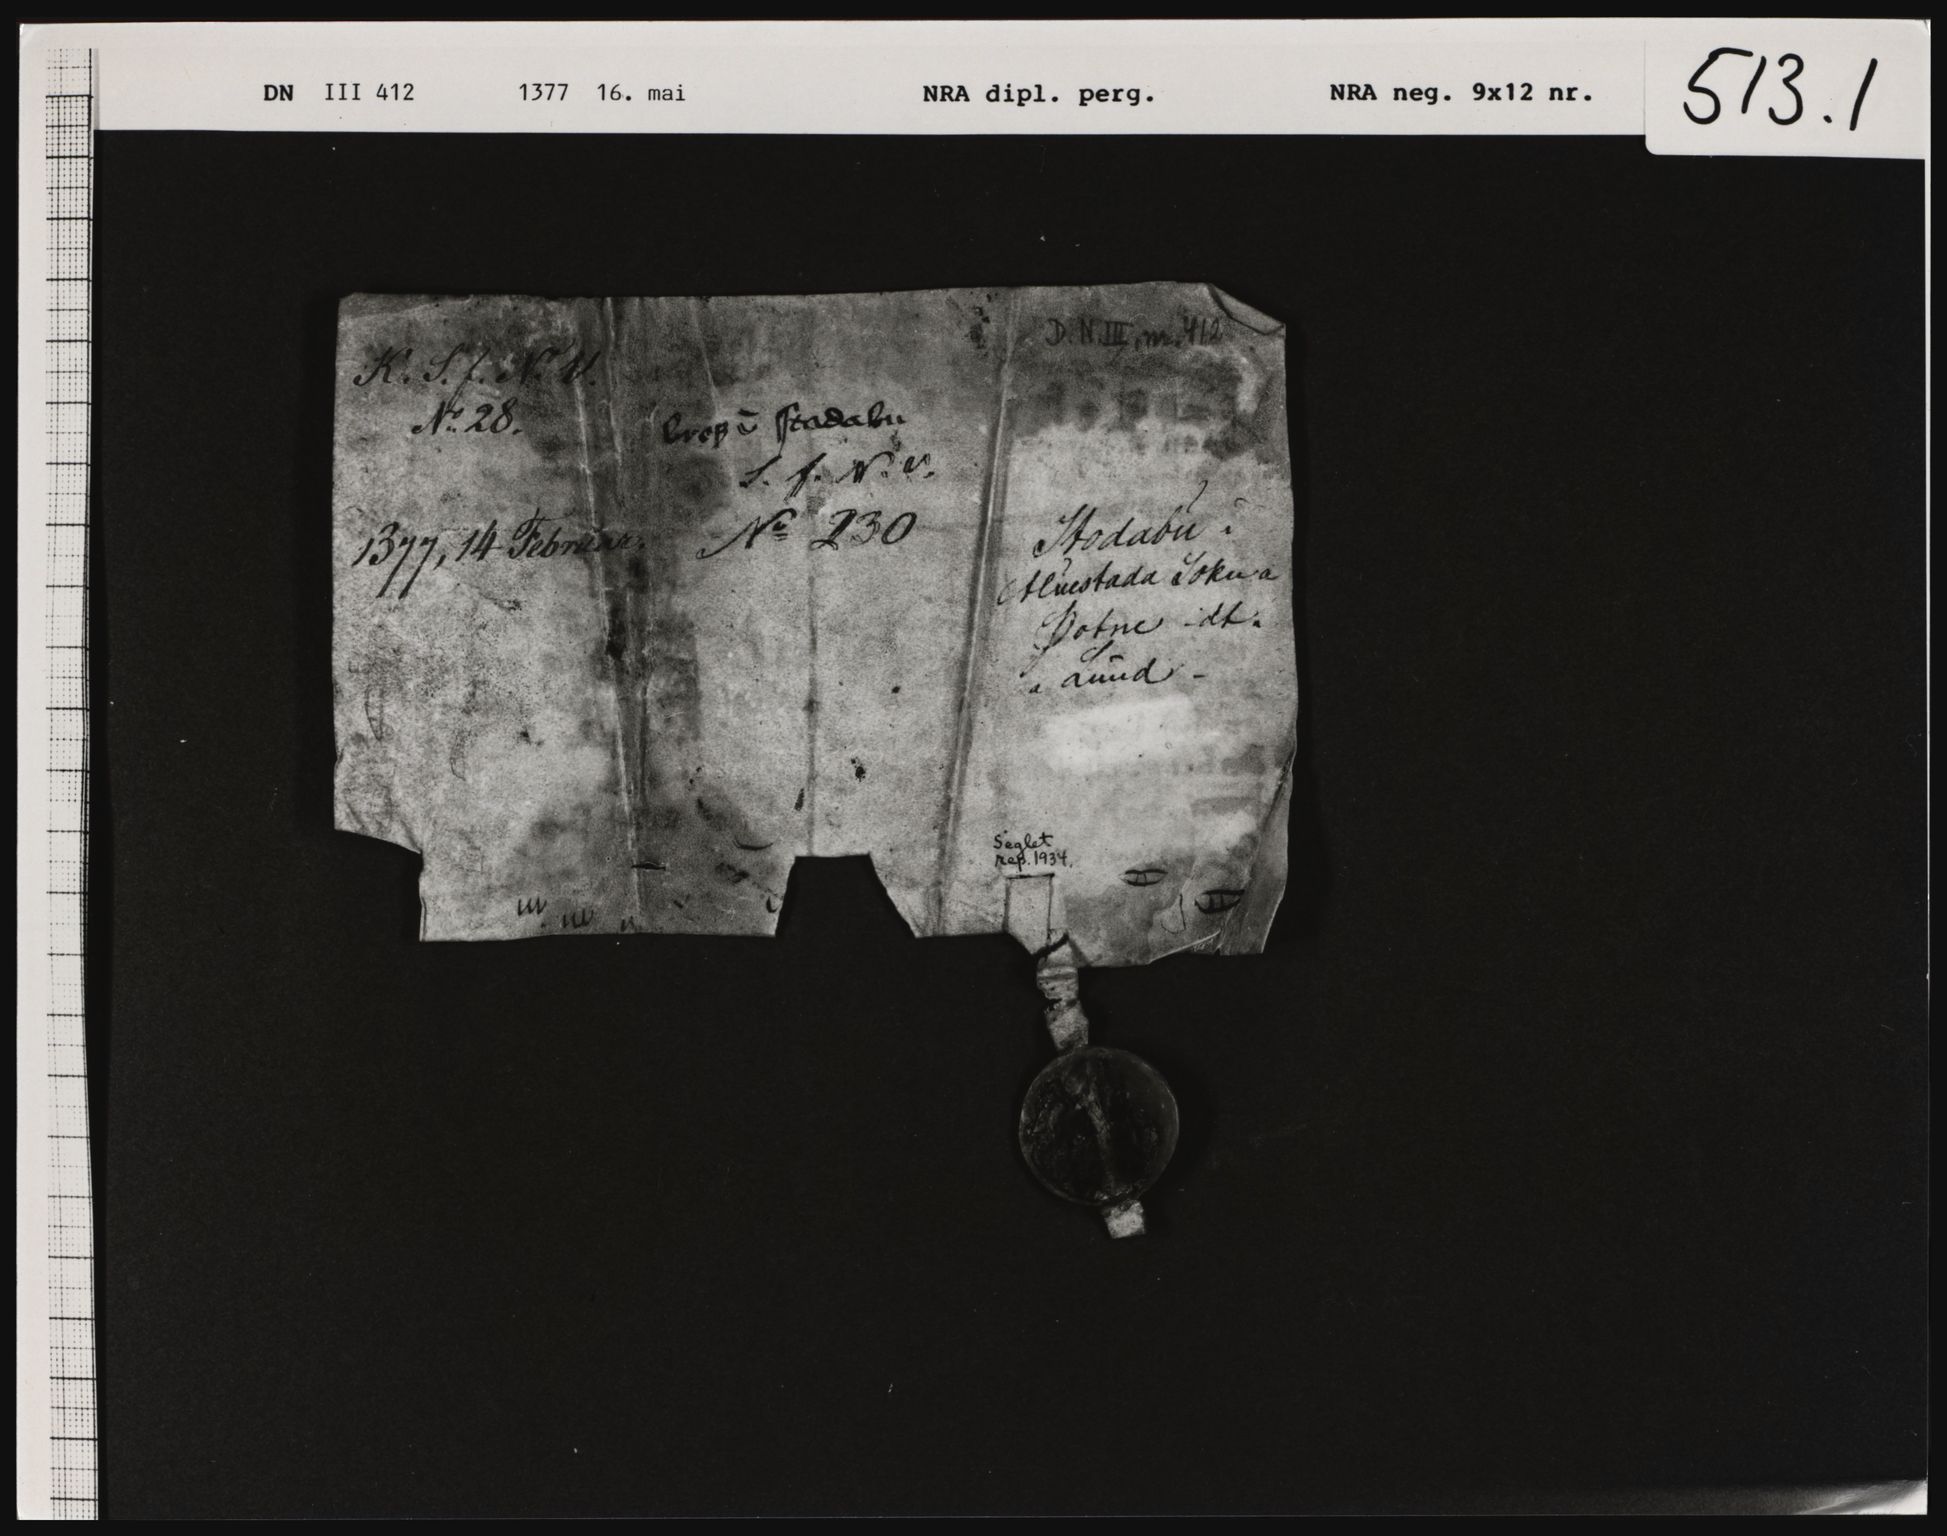 DN III 412 1377 16. mai NRA dipl. perg. NRA neg. 9x12 nr. 513.1
D.N. III, nr. 412
K. S. f. N. V.
No 28.
1377, 14 Februar.
stadabu
S. f. N. V.
No 230
Stodabu i
Soku a
Botne idt.
a Lund -
Seglet
rep. 1934.